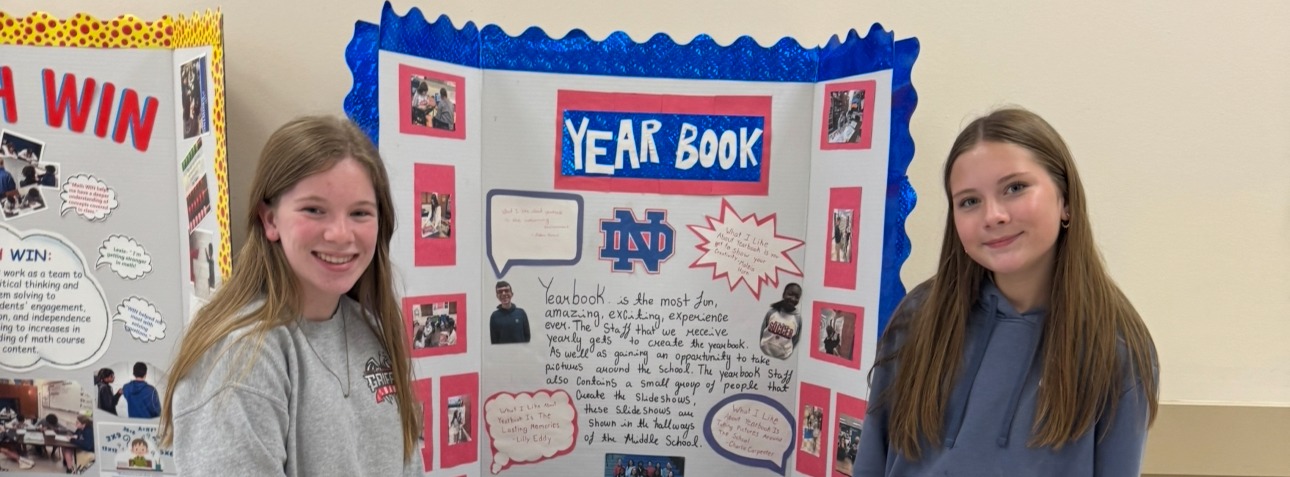 WIN
"Math WIN helps
me have a deeper
understanding of
concepts covered
in class."
Lexie: "I'm
getting stronger
in math!"
WIN:
work as a team to
itical thinking and
em solving to
dents' engagement,
on, and independence
ing to increases in
ding of math course
content.
YEAR BOOK
ND
What I Like
About Yearbook is we
get to show your
Yearbook is the most fun,
amazing, exciting, experience
ever. The Staff that we receive
yearly gets to create the yearbook.
As well as gaining an opportunity to take
pictures around the school. The yearbook Staff
also contains a small group of people that
Create the Slideshows,
these Slideshows are
shown in the hallways
of the Middle School.
What I Like that
Yearbook Is The
Lasting Memories.
-Lilly Eddy
What I Like
About Yearbook Is
Taking Pictures Around
The School
-Charlie Carpenter
SOCCER